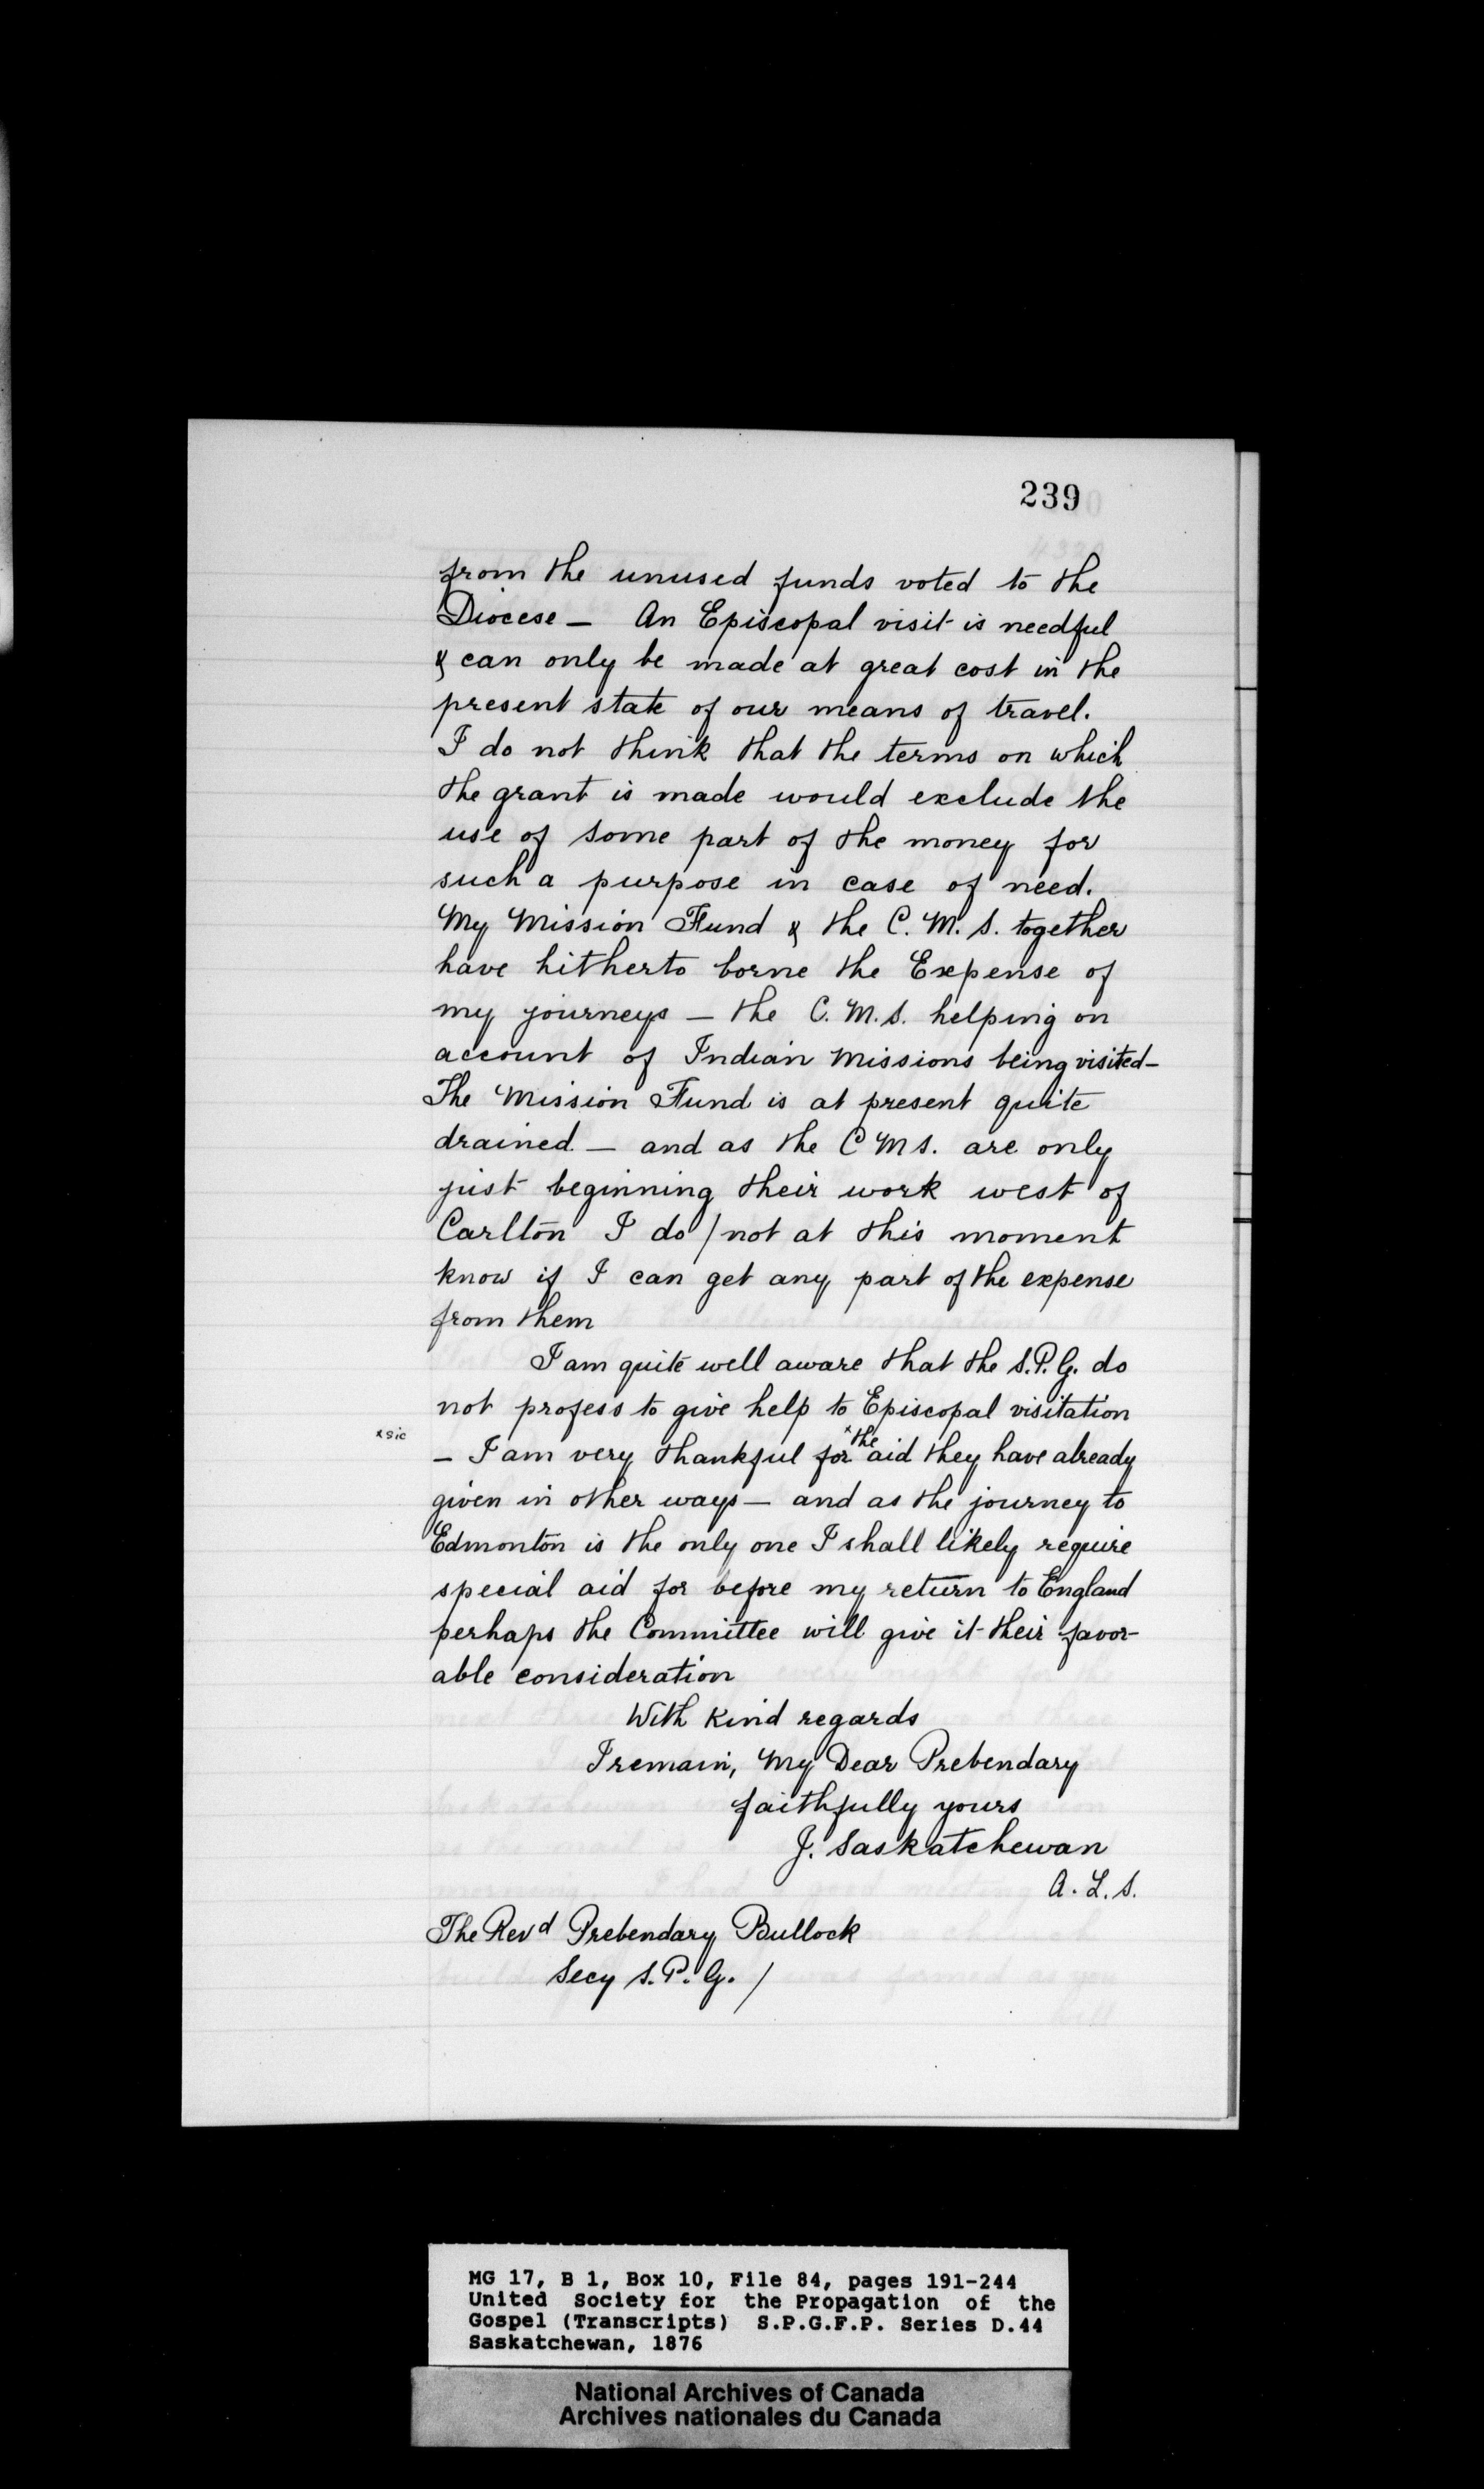 239
from the unused funds voted to the
Diocese — An Episcopal visit is needful
& can only be made at great cost in the
present state of our means of travel.
I do not think that the terms on which
the grant is made would exclude the
use of some part of the money for
such a purpose in case of need.
My Mission Fund & the C. M. S. together
have hitherto borne the Expense of
my journeys — the C. M. S. helping on
account of Indian Missions being visited —
The Mission Fund is at present quite
drained — and as the C M S. are only
just beginning their work west of
Carlton I do / not at this moment
know if I can get any part of the expense
from them
I am quite well aware that the S. P. G. do
not profess to give help to Episcopal visitation
x sic
— I am very thankful for x the aid they have already
given in other ways — and as the journey to
Edmonton is the only one I shall likely require
special aid for before my return to England
perhaps the Committee will give it their favor-
able consideration
With kind regards
I remain, My Dear Prebendary
faithfully yours
J. Saskatchewan
A. L. S.
The Revd Prebendary Bullock
Secy S. P. G. /
MG 17, B 1, Box 10, File 84, pages 191-244
United Society for the Propagation of the
Gospel (Transcripts) S.P.G.F.P. Series D.44
Saskatchewan, 1876
National Archives of Canada
Archives nationales du Canada